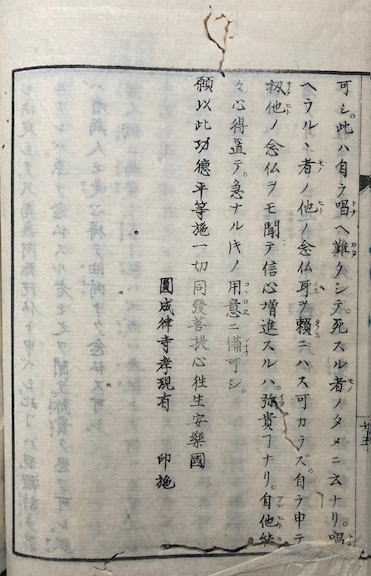 可シ。此ハ自ラ唱ヘ難クシテ。死スル者ノタメニ云ナリ。唱
ヘラルヽ者ノ他ノ念仏耳ヲ頼ニハス可カラズ。自ラ申テ
扨他ノ念仏ヲモ聞テ信心増進スルハ。弥貴ナリ。自他能
々心得置テ。急ナルキノ用意ニ備可シ。
願以此功德平等施一切同發菩提心徃生安樂國
圓成律寺孝現有 印施